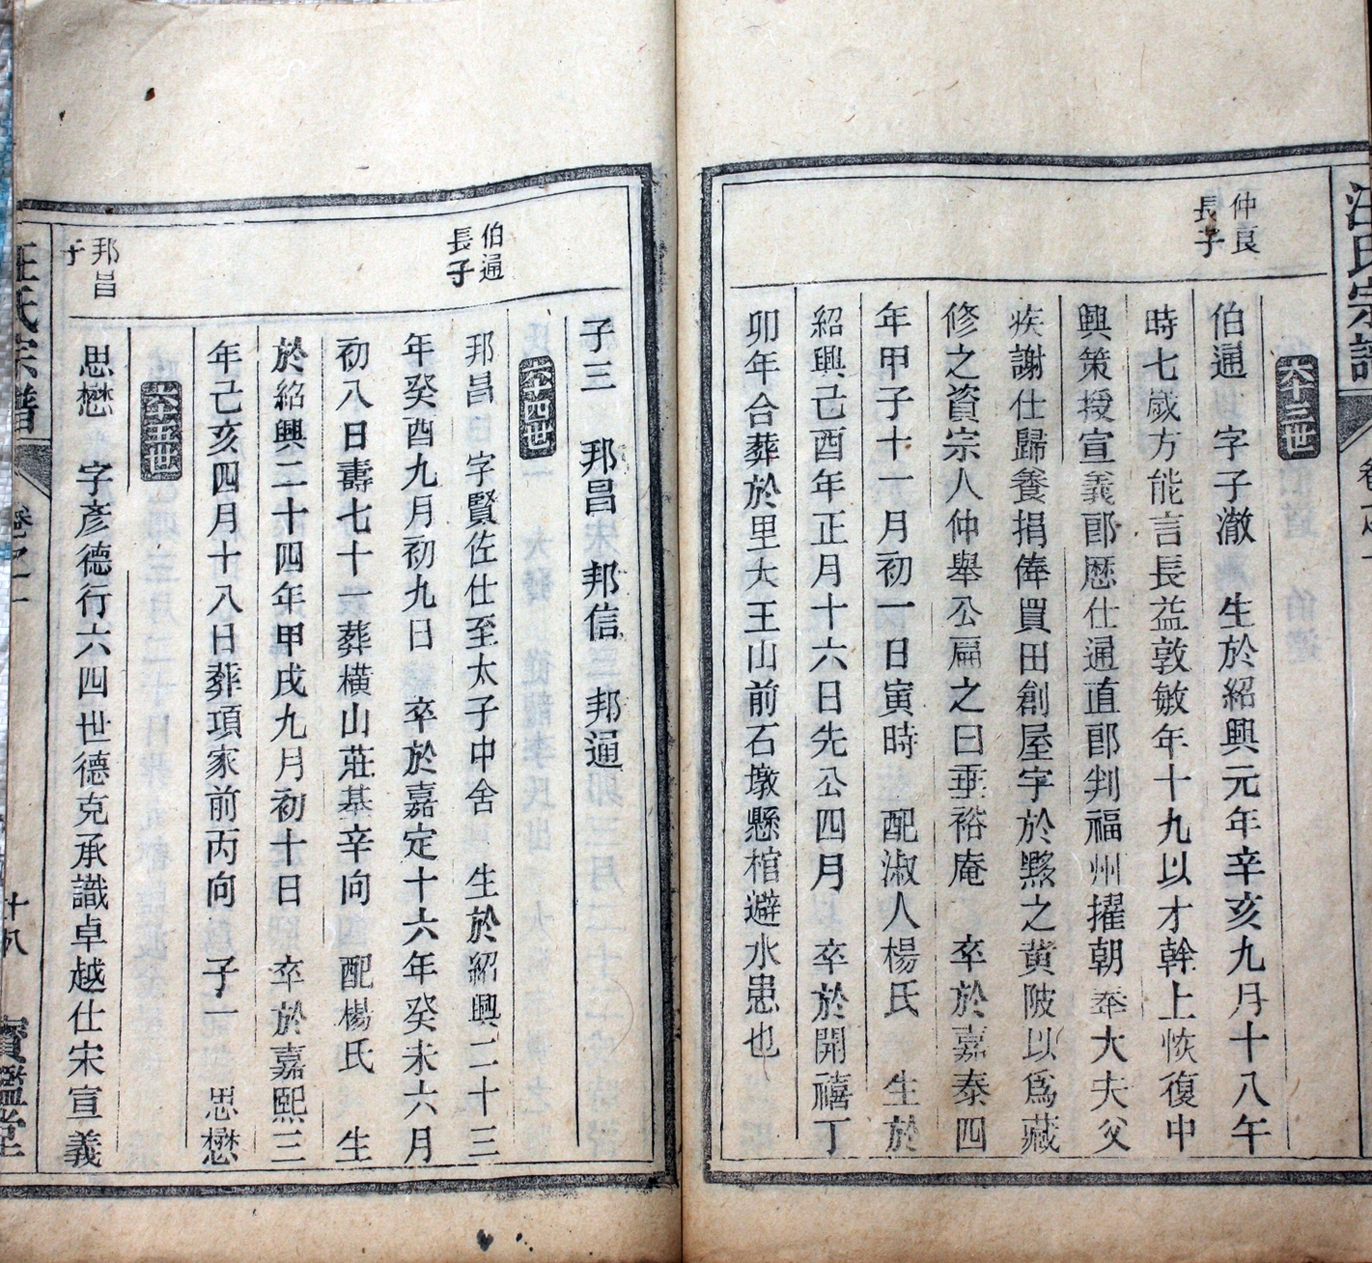 汪氏宗譜
仲良
長子
六十三世
伯通 字子澈 生於紹興元年辛亥九月十八午
時七歲方能言長益敦敏年十九以才幹上恢復中
興策授宣義郎歷仕通直郎判福州擢朝奉大夫父
疾謝仕歸養捐俸買田創屋字於黟之黄陂以爲藏
修之資宗人仲舉公扁之曰垂裕庵 卒於嘉泰四
年甲子十一月初一日寅時 配淑人楊氏 生於
紹興己酉年正月十六日先公四月 卒於開禧丁
卯年合葬於里大王山前石墩懸棺避水患也
子三 邦昌 邦信 邦通
六十四世
伯通
長子
邦昌 字賢佐仕至太子中舍 生於紹興二十三
年癸酉九月初九日 卒於嘉定十六年癸未六月
初八日壽七十一葬橫山莊基辛向 配楊氏 生
於紹興二十四年甲戌九月初十日 卒於嘉熙三
年己亥四月十八日葬項家前丙向 子一 思懋
六十五世
邦昌
子
思懋 字彥德行六四世德克承識卓越仕宋宣義
汪氏宗譜 卷之一 十八 寶鑑堂